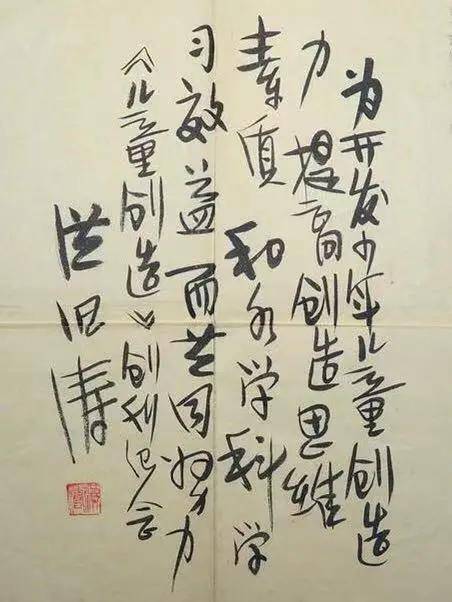 为开发少年儿童创造
力提高创造思维
素质和各学科学
习效益而共同努力
《儿童创造》创刊纪念
洪汛涛